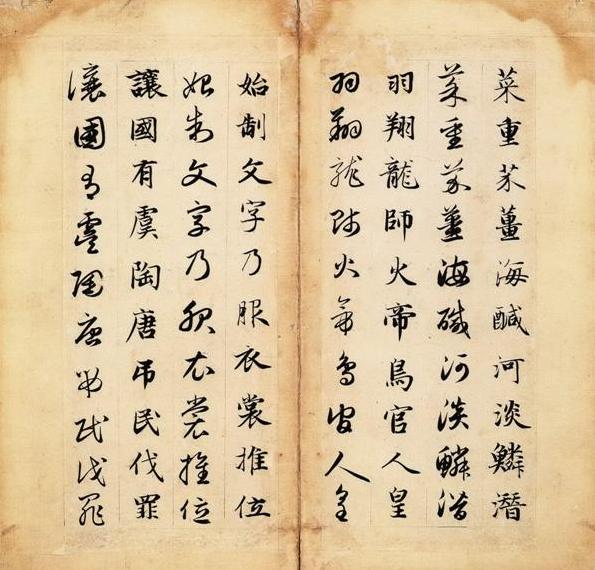 菜重芥薑海鹹河淡鱗潛
菜重芥薑海鹹河淡鱗潛
羽翔龍師火帝鳥官人皇
羽翔龍師火帝鳥官人皇
始制文字乃服衣裳推位
始制文字乃服衣裳推位
讓國有虞陶唐弔民伐罪
讓國有虞陶唐弔民伐罪